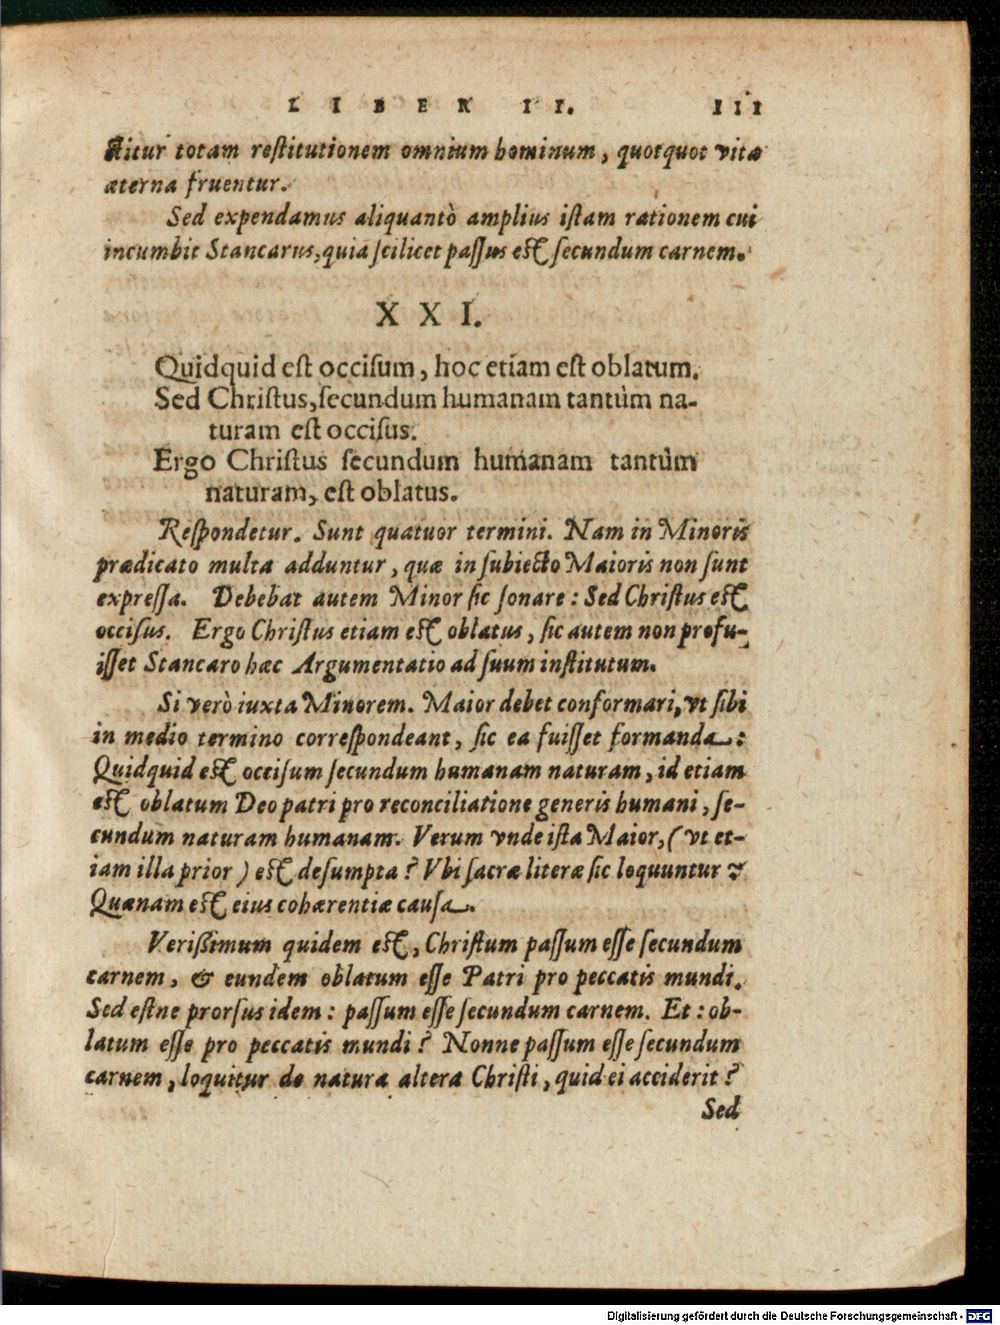 LIBER II. 111
stitur totam restitutionem omnium hominum, quotquot vitæ
æterna fruentur.
Sed expendamus aliquantò amplius istam rationem cui
incumbit Stancarus, quia scilicet passus est secundum carnem.
XXI.
Quidquid est occisum, hoc etiam est oblatum.
Sed Christus, secundum humanam tantùm na-
turam est occisus.
Ergo Christus secundum humanam tantùm
naturam, est oblatus.
Respondetur. Sunt quatuor termini. Nam in Minoris
prædicato multa adduntur, quæ in subiecto Maioris non sunt
expressa. Debebat autem Minor sic sonare: Sed Christus est
occisus. Ergo Christus etiam est oblatus, sic autem non profu-
isset Stancaro hæc Argumentatio ad suum institutum.
Si verò iuxta Minorem. Maior debet conformari, vt sibi
in medio termino correspondeant, sic ea fuisset formanda:
Quidquid est occisum secundum humanam naturam, id etiam
est oblatum Deo patri pro reconciliatione generis humani, se-
cundum naturam humanam. Verum vnde ista Maior, (vt et-
iam illa prior) est desumpta? Vbi sacræ literæ sic loquuntur?
Quænam est eius cohærentiæ causa.
Verißimum quidem est, Christum passum esse secundum
carnem, & eundem oblatum esse Patri pro peccatis mundi.
Sed estne prorsus idem: passum esse secundum carnem. Et: ob-
latum esse pro peccatis mundi? Nonne passum esse secundum
carnem, loquitur de natura altera Christi, quid ei acciderit?
Sed
Digitalisierung gefördert durch die Deutsche Forschungsgemeinschaft - DFG